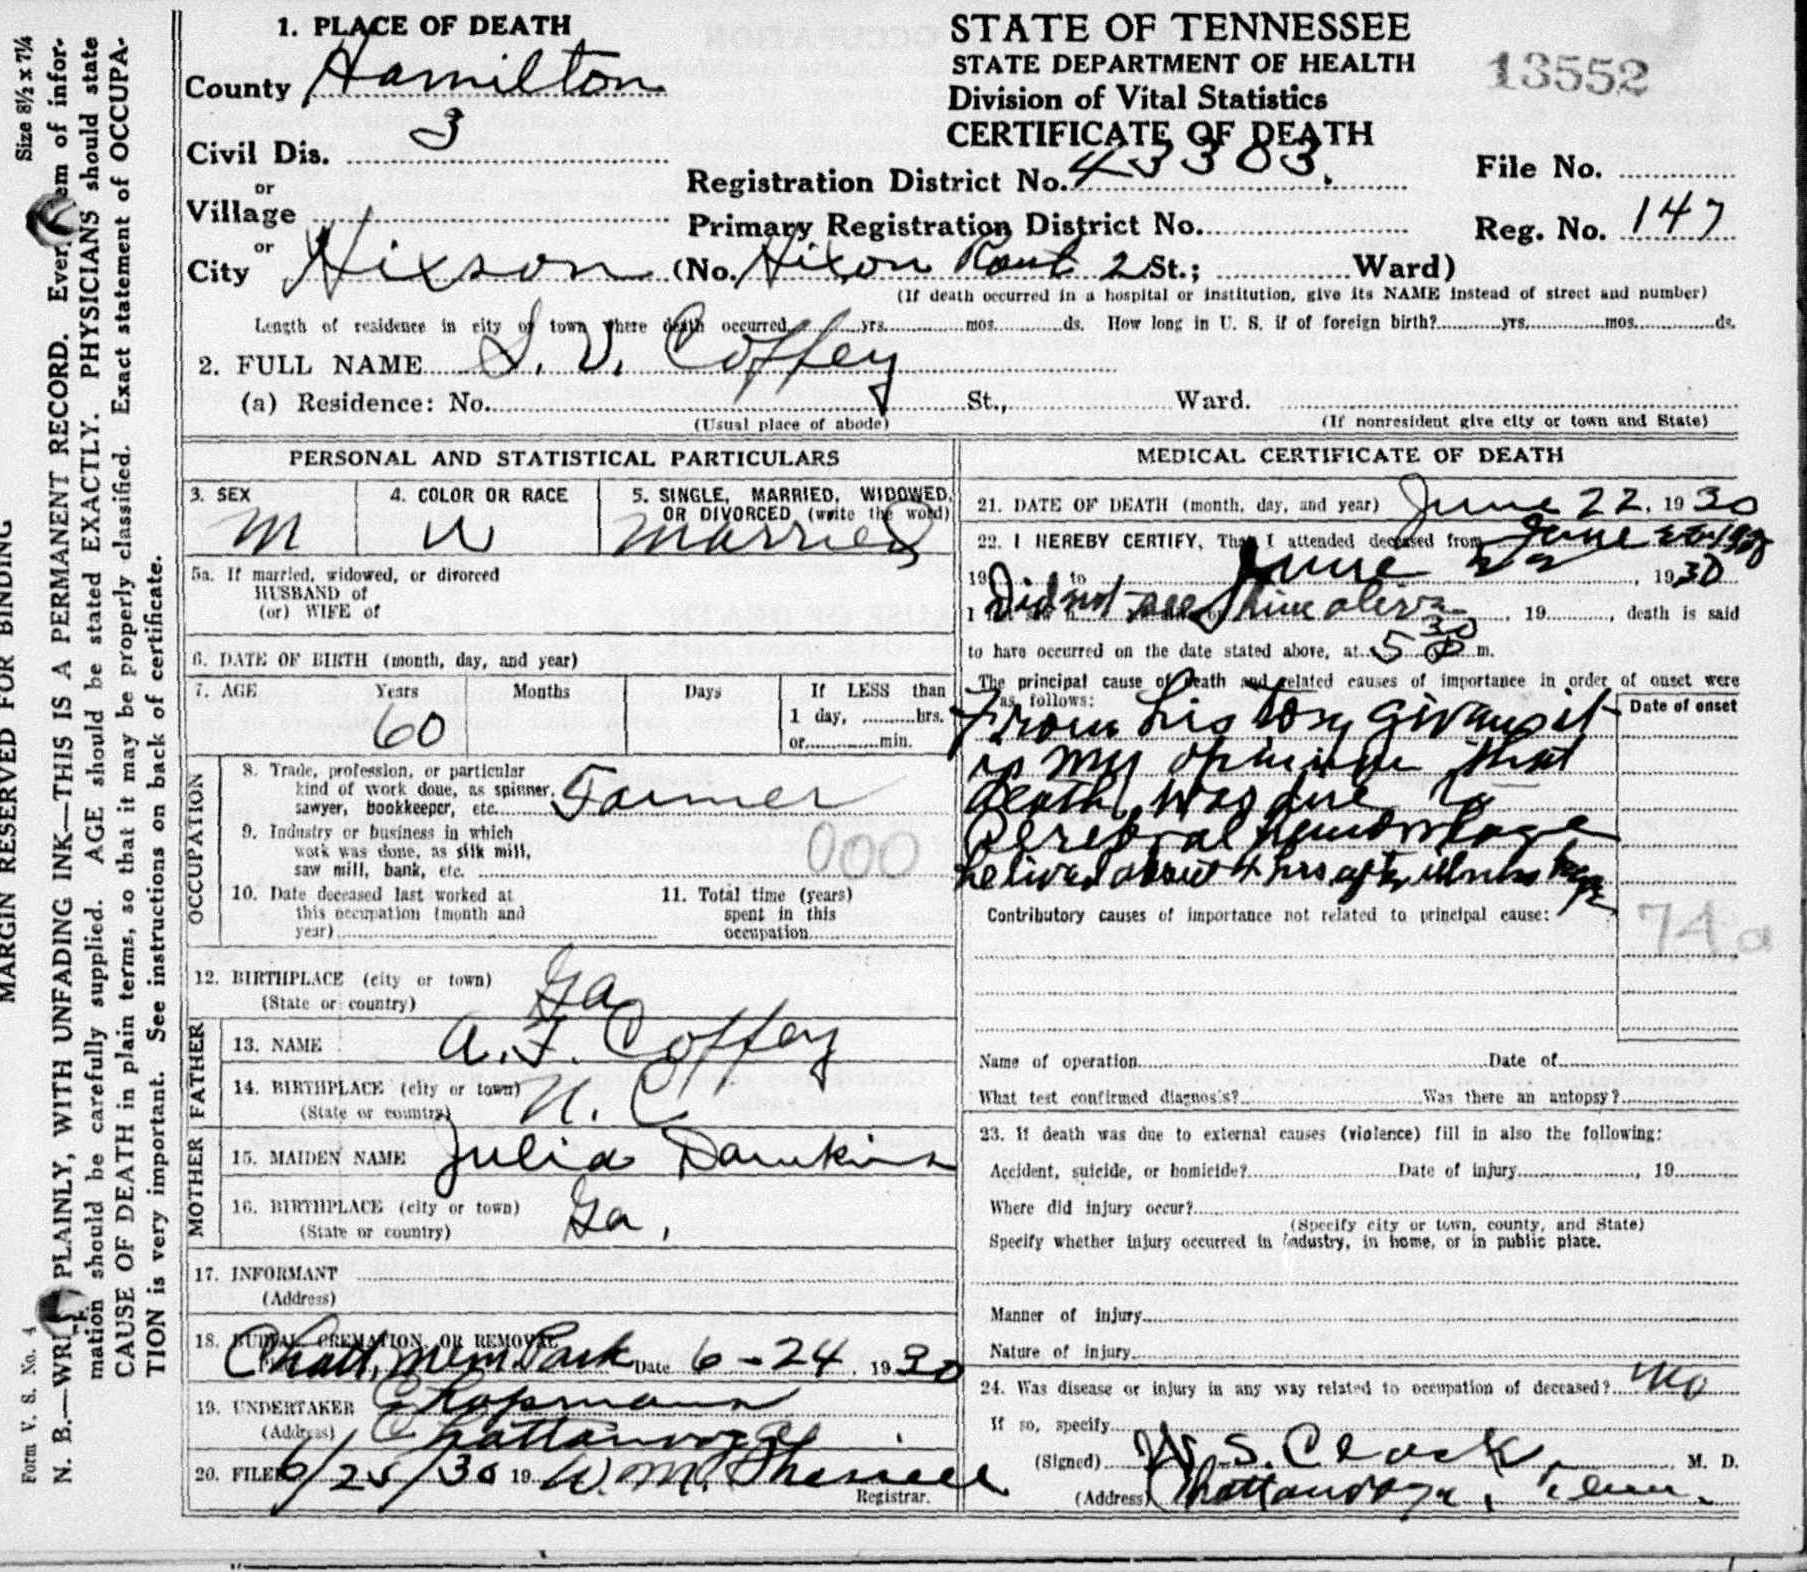 Size 8½ x 7¼
MARGIN RESERVED FOR BINDING
N. B.—WRITE PLAINLY, WITH UNFADING INK—THIS IS A PERMANENT RECORD. Every item of infor-
mation should be carefully supplied. AGE should be stated EXACTLY. PHYSICIANS should state
CAUSE OF DEATH in plain terms, so that it may be properly classified. Exact statement of OCCUPA-
TION is very important. See instructions on back of certificate.
Form V. S. No. 4
1. PLACE OF DEATH
County Hamilton
Civil Dis. 3
or
Village
or
City Hixson (No. Hixon Rout 2 St.; Ward)
STATE OF TENNESSEE
STATE DEPARTMENT OF HEALTH
Division of Vital Statistics
CERTIFICATE OF DEATH
13552
Registration District No. 43303.
File No.
Primary Registration District No.
Reg. No. 147
(If death occurred in a hospital or institution, give its NAME instead of street and number)
Length of residence in city or town where death occurred yrs. mos. ds. How long in U. S. if of foreign birth? yrs. mos. ds.
2. FULL NAME S. V. Coffey
(a) Residence: No. St., Ward.
(Usual place of abode) (If nonresident give city or town and State)
PERSONAL AND STATISTICAL PARTICULARS
3. SEX M
4. COLOR OR RACE W
5. SINGLE, MARRIED, WIDOWED,
OR DIVORCED (write the word)
Married
5a. If married, widowed, or divorced
HUSBAND of
(or) WIFE of
6. DATE OF BIRTH (month, day, and year)
7. AGE Years Months Days If LESS than
1 day, hrs.
or min.
60
OCCUPATION
8. Trade, profession, or particular
kind of work done, as spinner,
sawyer, bookkeeper, etc. Farmer
9. Industry or business in which
work was done, as silk mill,
saw mill, bank, etc.
000
10. Date deceased last worked at
this occupation (month and
year)
11. Total time (years)
spent in this
occupation
12. BIRTHPLACE (city or town)
(State or country) Ga
FATHER
13. NAME A. F. Coffey
14. BIRTHPLACE (city or town)
(State or country) N. C
MOTHER
15. MAIDEN NAME Julia Dawkins
16. BIRTHPLACE (city or town)
(State or country) Ga,
17. INFORMANT
(Address)
18. BURIAL, CREMATION, OR REMOVAL
Chatt. Mem Park Date 6-24, 1930
19. UNDERTAKER Chapmans
(Address) Chattanooga
20. FILED 6/25/30 19 W. M.
Registrar.
MEDICAL CERTIFICATE OF DEATH
21. DATE OF DEATH (month, day, and year) June 22, 1930
22. I HEREBY CERTIFY, That I attended deceased from June
19 to June 22, 1930
Did not see him alive 19 , death is said
to have occurred on the date stated above, at 5 30 P m.
The principal cause of death and related causes of importance in order of onset were
as follows:
Date of onset
From history given it
is my opinion that
death was due to
Cerebral hemorrhage
he lived about 4 hrs after illness
Contributory causes of importance not related to principal cause:
74a
Name of operation Date of
What test confirmed diagnosis? Was there an autopsy?
23. If death was due to external causes (violence) fill in also the following:
Accident, suicide, or homicide? Date of injury , 19
Where did injury occur?
(Specify city or town, county, and State)
Specify whether injury occurred in industry, in home, or in public place.
Manner of injury
Nature of injury
24. Was disease or injury in any way related to occupation of deceased? No
If so, specify
(Signed) W. S. Clack, M. D.
(Address) Chattanooga, Tenn.